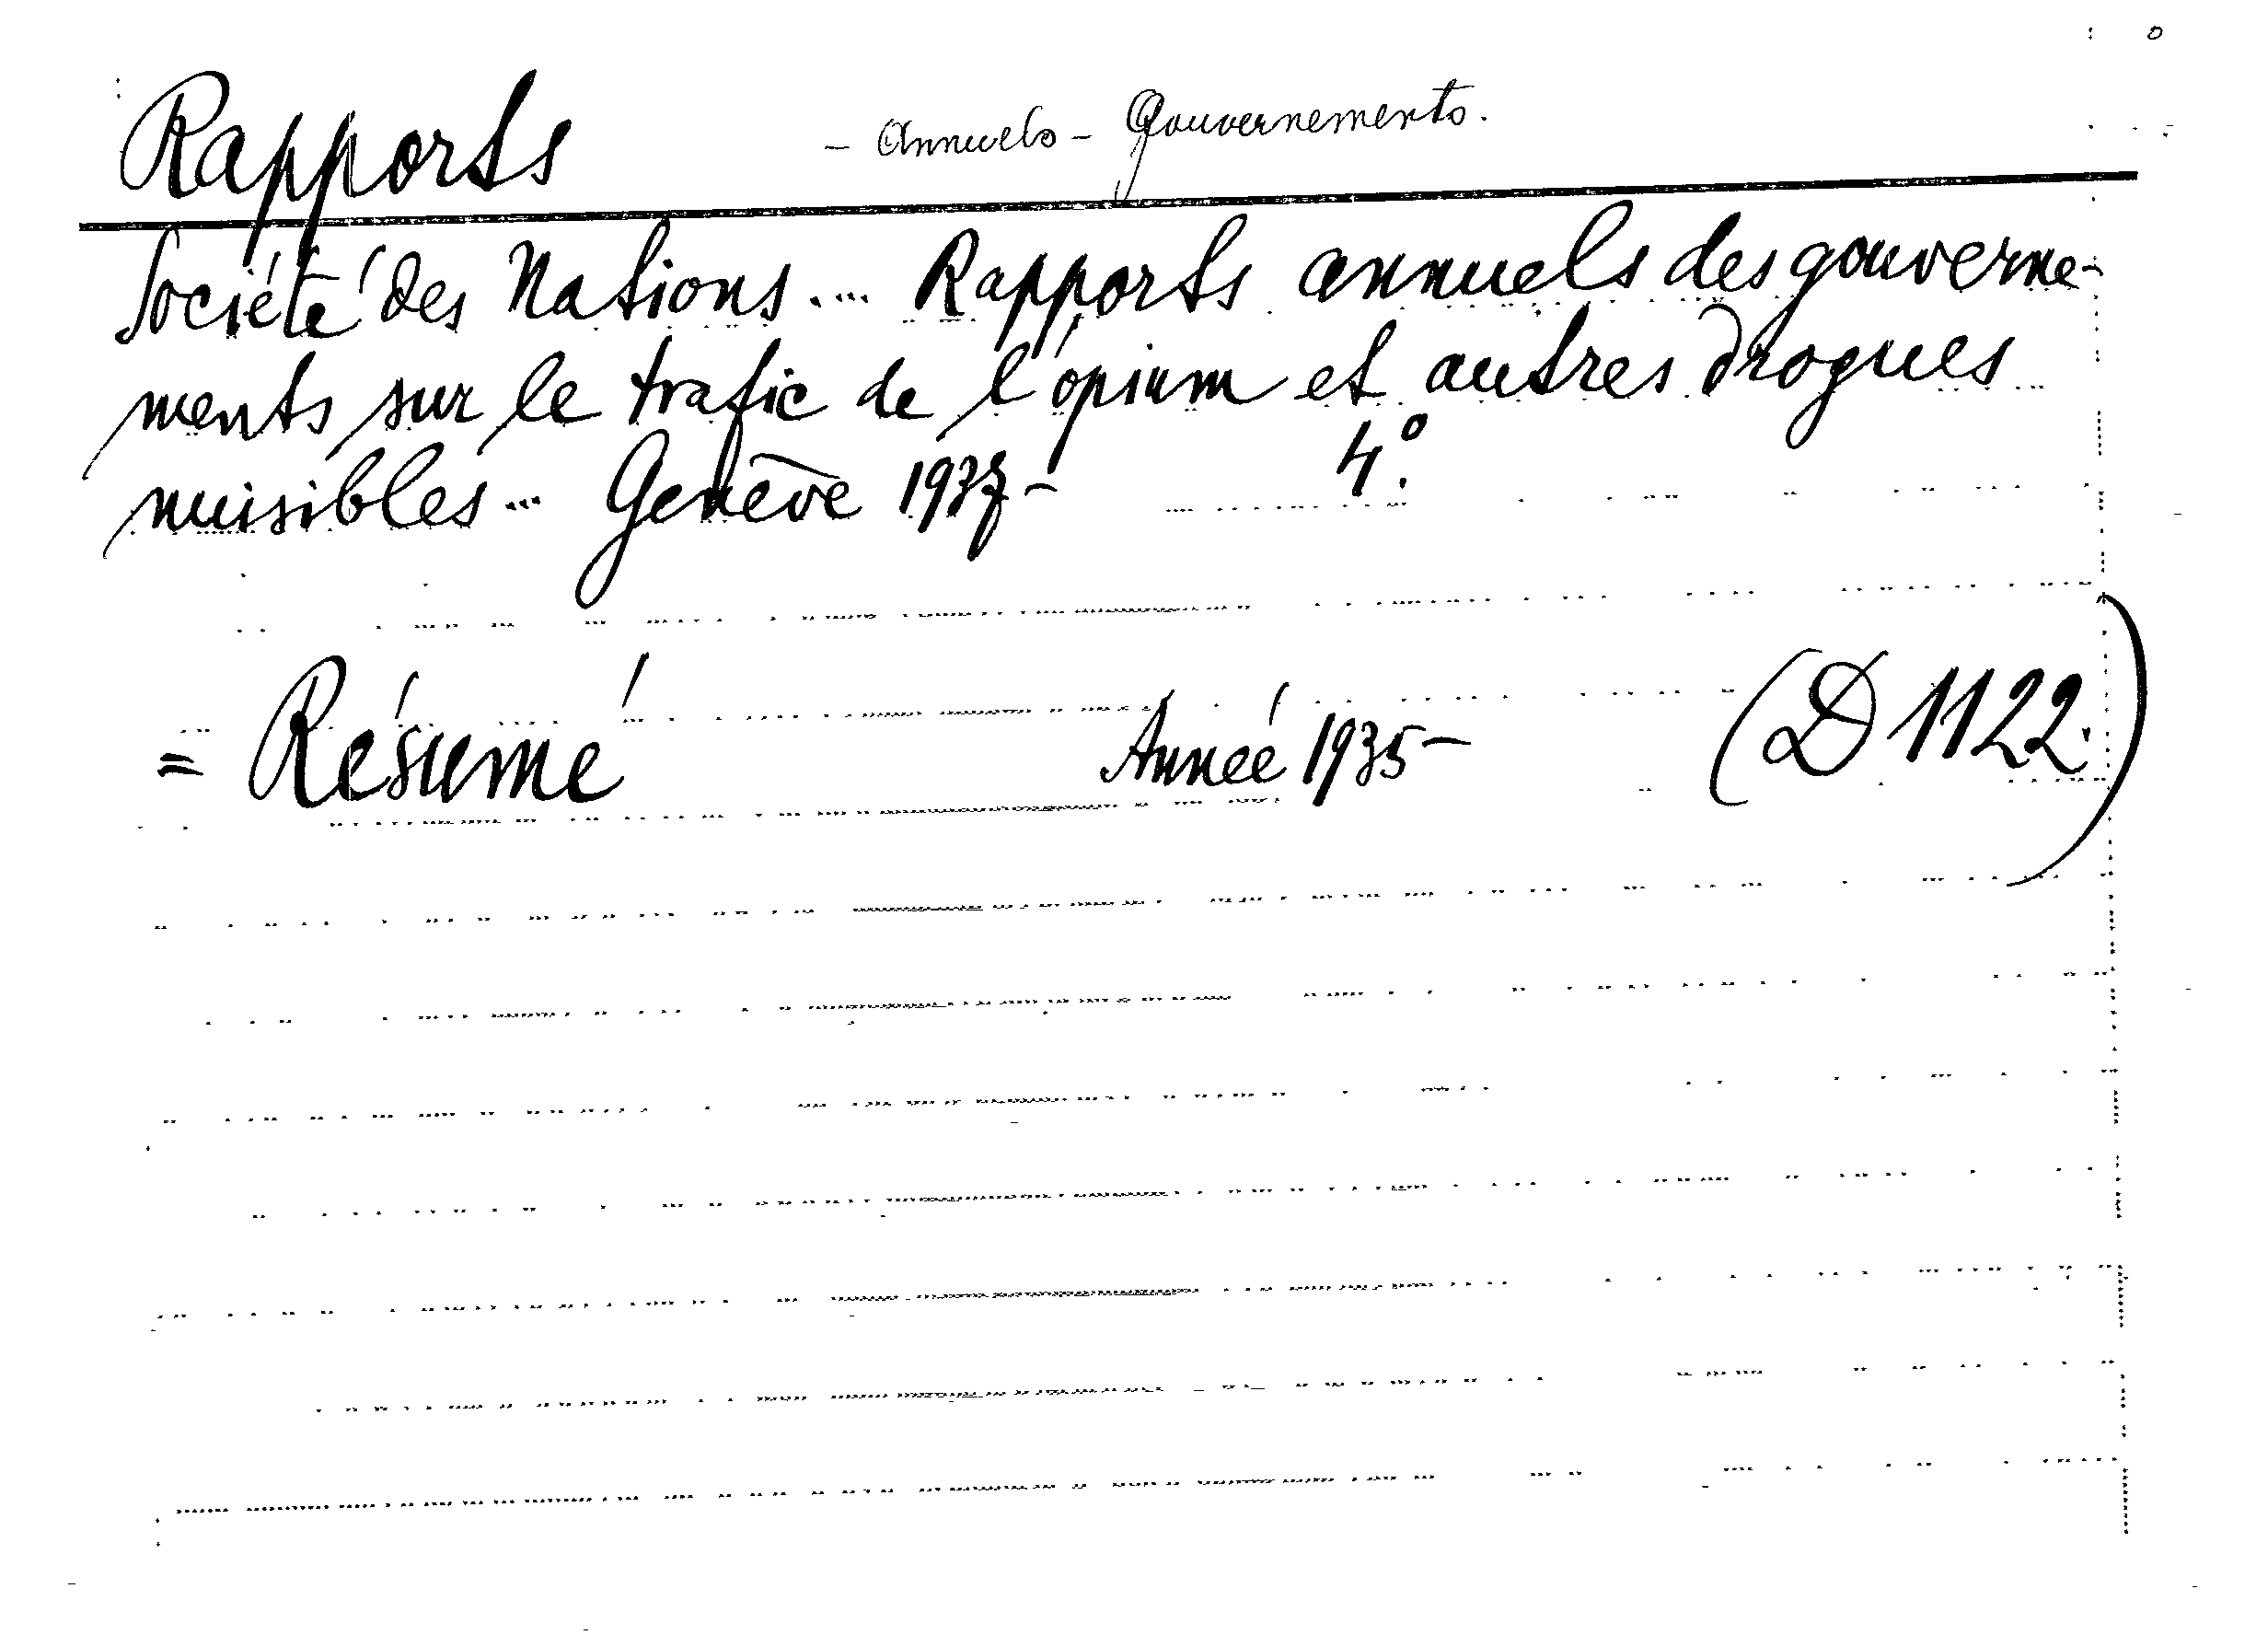 Rapports - Annuels - Gouvernements.
Société des Nations.... Rapports annuels des gouverne-
ments sur le trafic de l'opium et autres drogues
nuisibles... Genève 1937- 4°.
= Résumé Année 1935- (D 1122.)